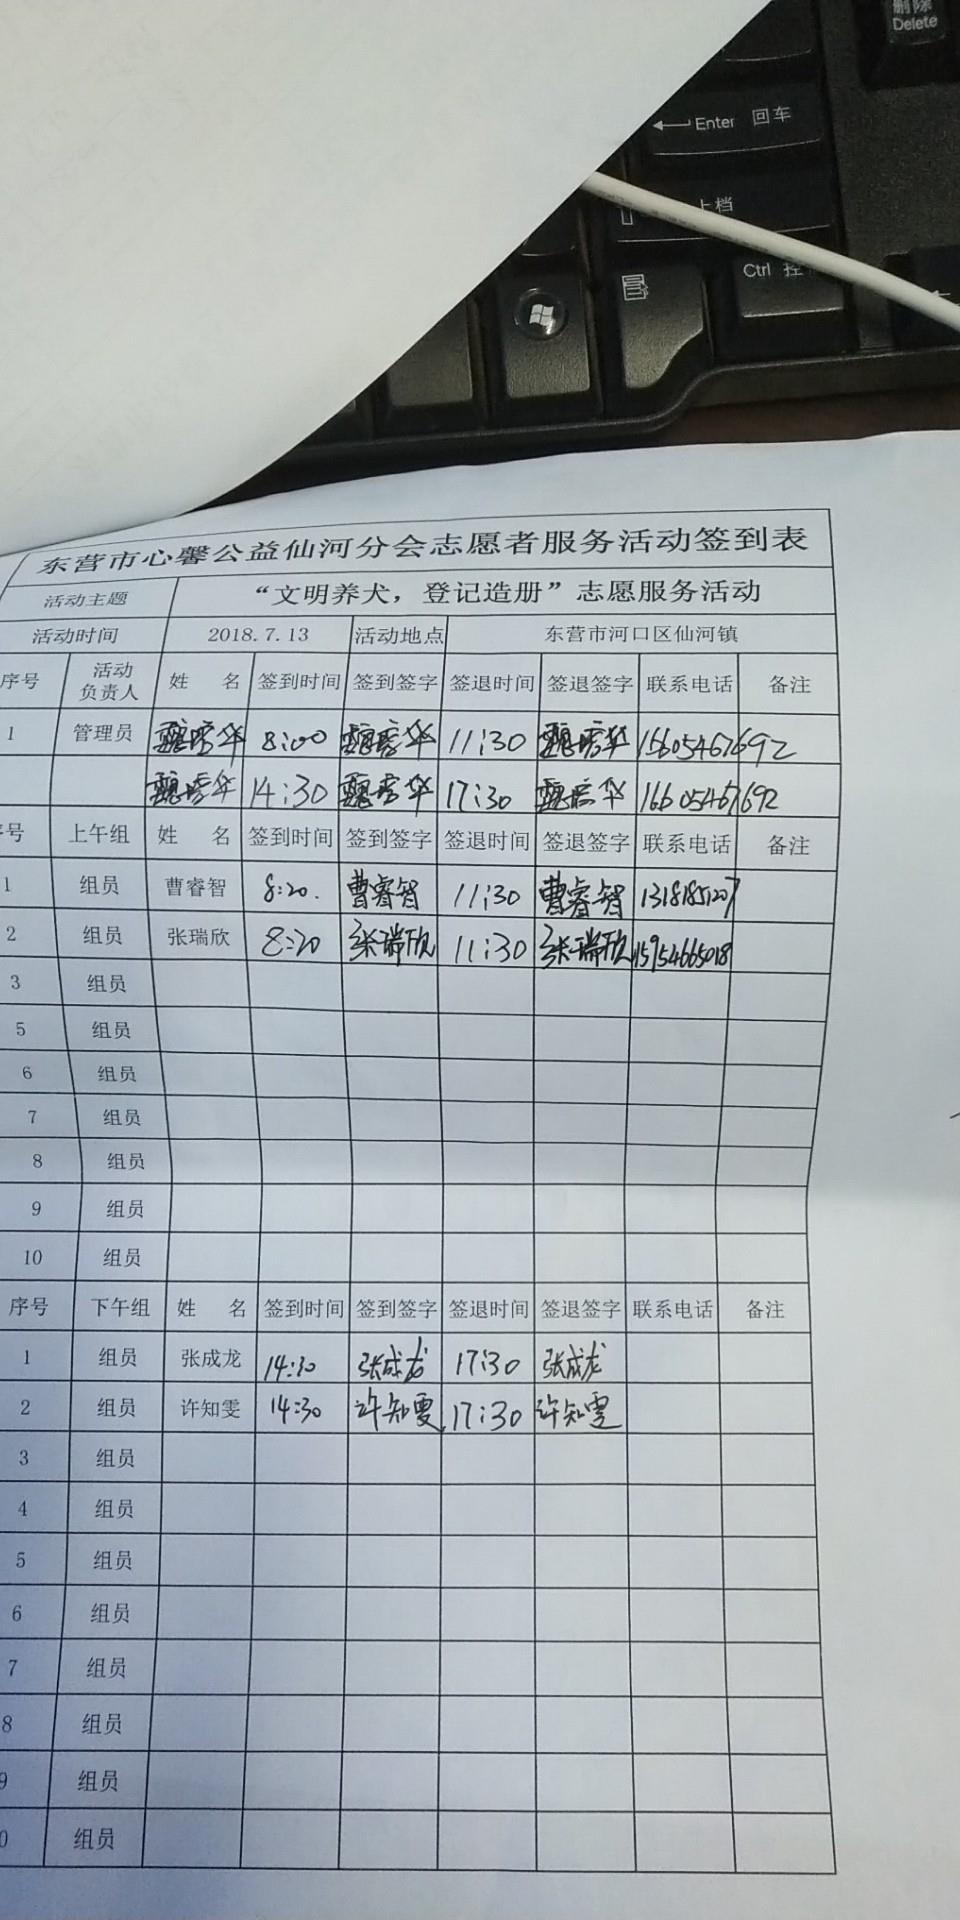 删除
Delete
Enter 回车
上档
Ctrl 控
东营市心馨公益仙河分会志愿者服务活动签到表
活动主题 “文明养犬，登记造册”志愿服务活动
活动时间 2018.7.13 活动地点 东营市河口区仙河镇
序号 活动负责人 姓 名 签到时间 签到签字 签退时间 签退签字 联系电话 备注
1 管理员 魏秀华 8:00 魏秀华 11:30 魏秀华 15605467692
魏秀华 14:30 魏秀华 17:30 魏秀华 16605467692
号 上午组 姓 名 签到时间 签到签字 签退时间 签退签字 联系电话 备注
1 组员 曹睿智 8:20. 曹睿智 11:30 曹睿智
2 组员 张瑞欣 8:20 张瑞欣 11:30 张瑞欣 15954665018
3 组员
5 组员
6 组员
7 组员
8 组员
9 组员
10 组员
序号 下午组 姓 名 签到时间 签到签字 签退时间 签退签字 联系电话 备注
1 组员 张成龙 14:30 张成龙 17:30 张成龙
2 组员 许知雯 14:30 许知雯 17:30 许知雯
3 组员
4 组员
5 组员
6 组员
7 组员
8 组员
9 组员
0 组员